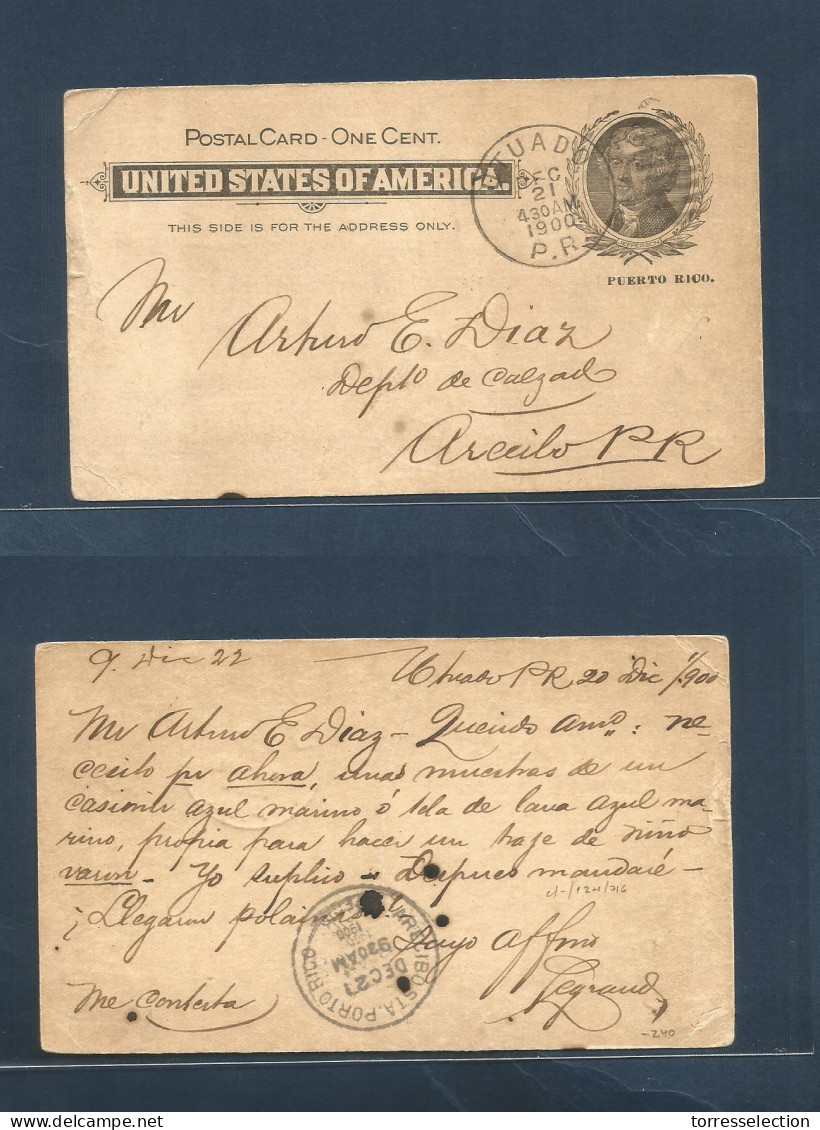 POSTAL CARD - ONE CENT.
UNITED STATES OF AMERICA.
THIS SIDE IS FOR THE ADDRESS ONLY.
UTUADO
DEC
21
4 30 AM
1900
P.R.
JEFFERSON
PUERTO RICO.
Mr Arturo E. Diaz
Depto de Calzado
Arecibo PR
9. Dic 22
Utuado PR 20 Dic 1/900
Mr Arturo E Diaz - Querido Amo: ne-
cesito pr ahora, unas muestras de un
casimir azul marino ó tela de lana azul ma-
rino, propia para hacer un traje de niño
varon - Yo suplio - Despues mandaré -
¡Llegaron polainas!
Suyo Affmo
Legrand
Me contesta
ARECIBO STA. PORTO RICO
DEC 21
9 30 AM
1900
-240
torresselection